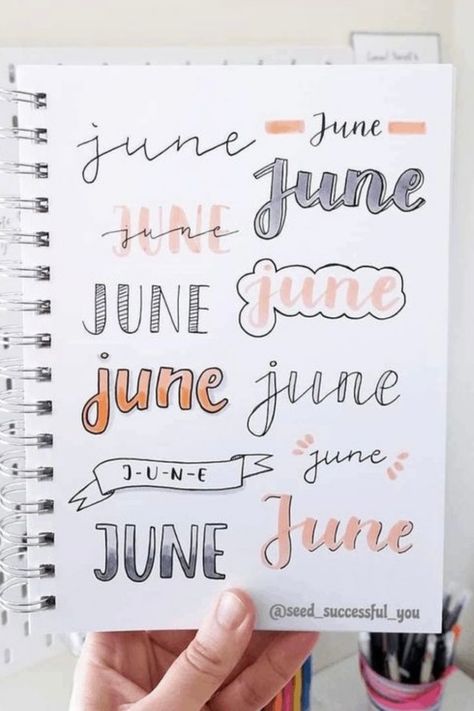 june
June
June
JUNE
june
JUNE
june
june
june
J-U-N-E
june
JUNE
June
@seed_successful_you